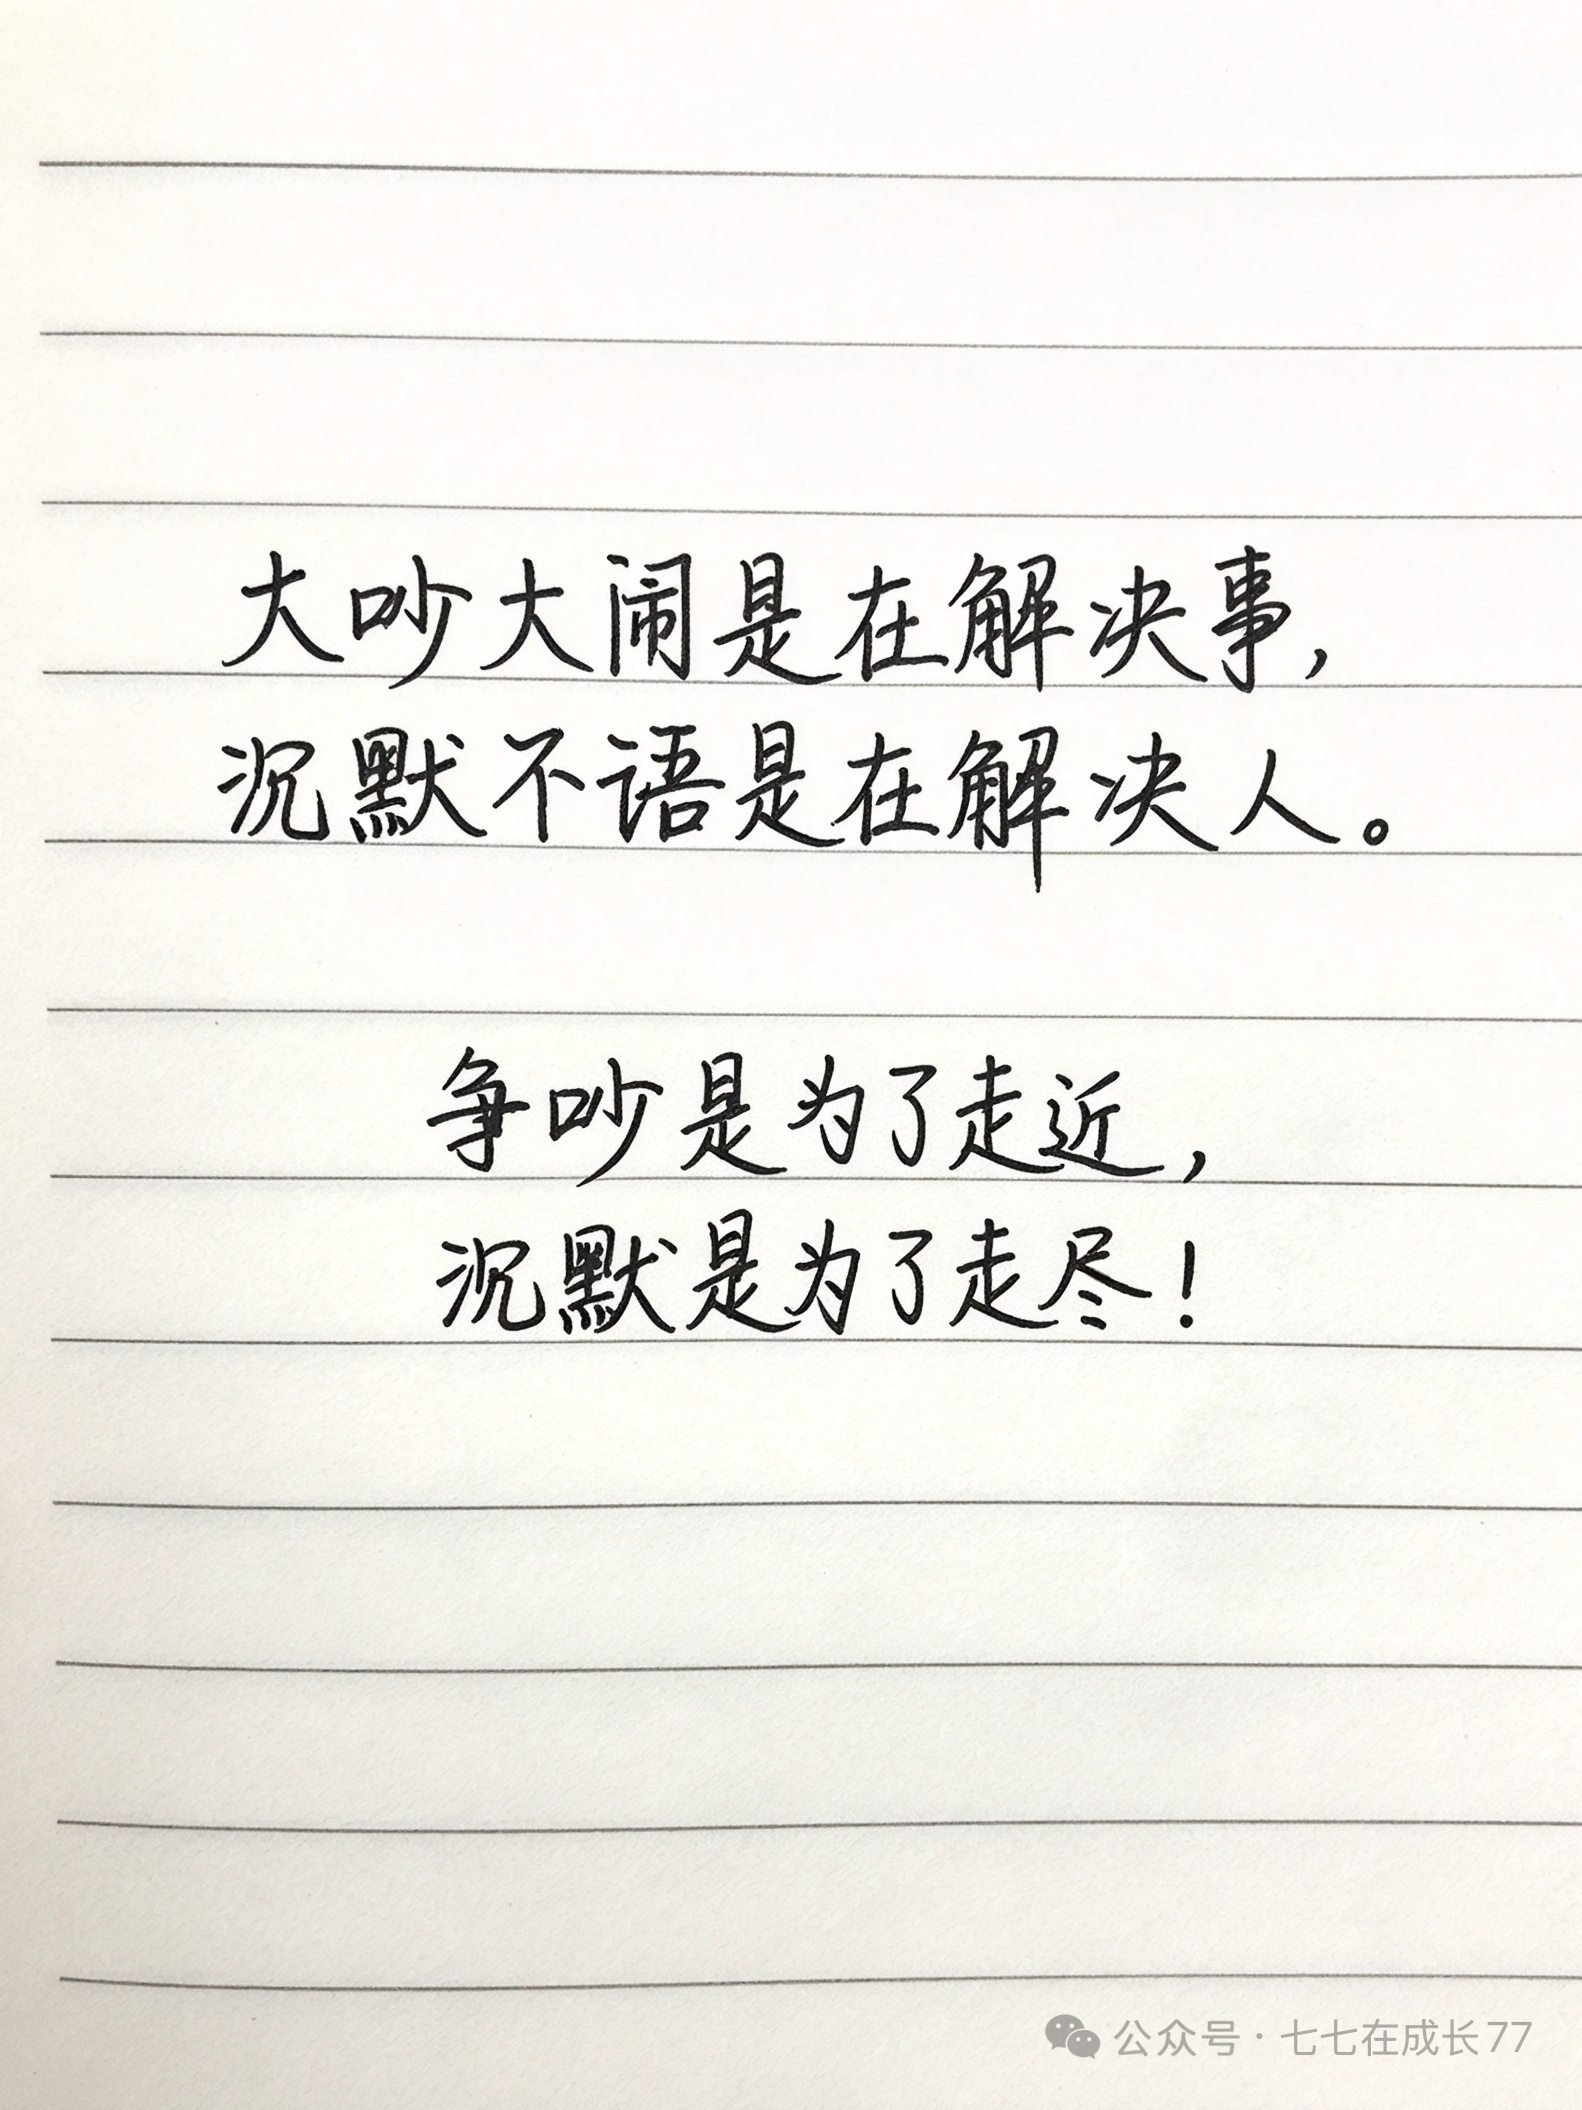 大吵大闹是在解决事,
沉默不语是在解决人。
争吵是为了走近,
沉默是为了走尽!
公众号·七七在成长77